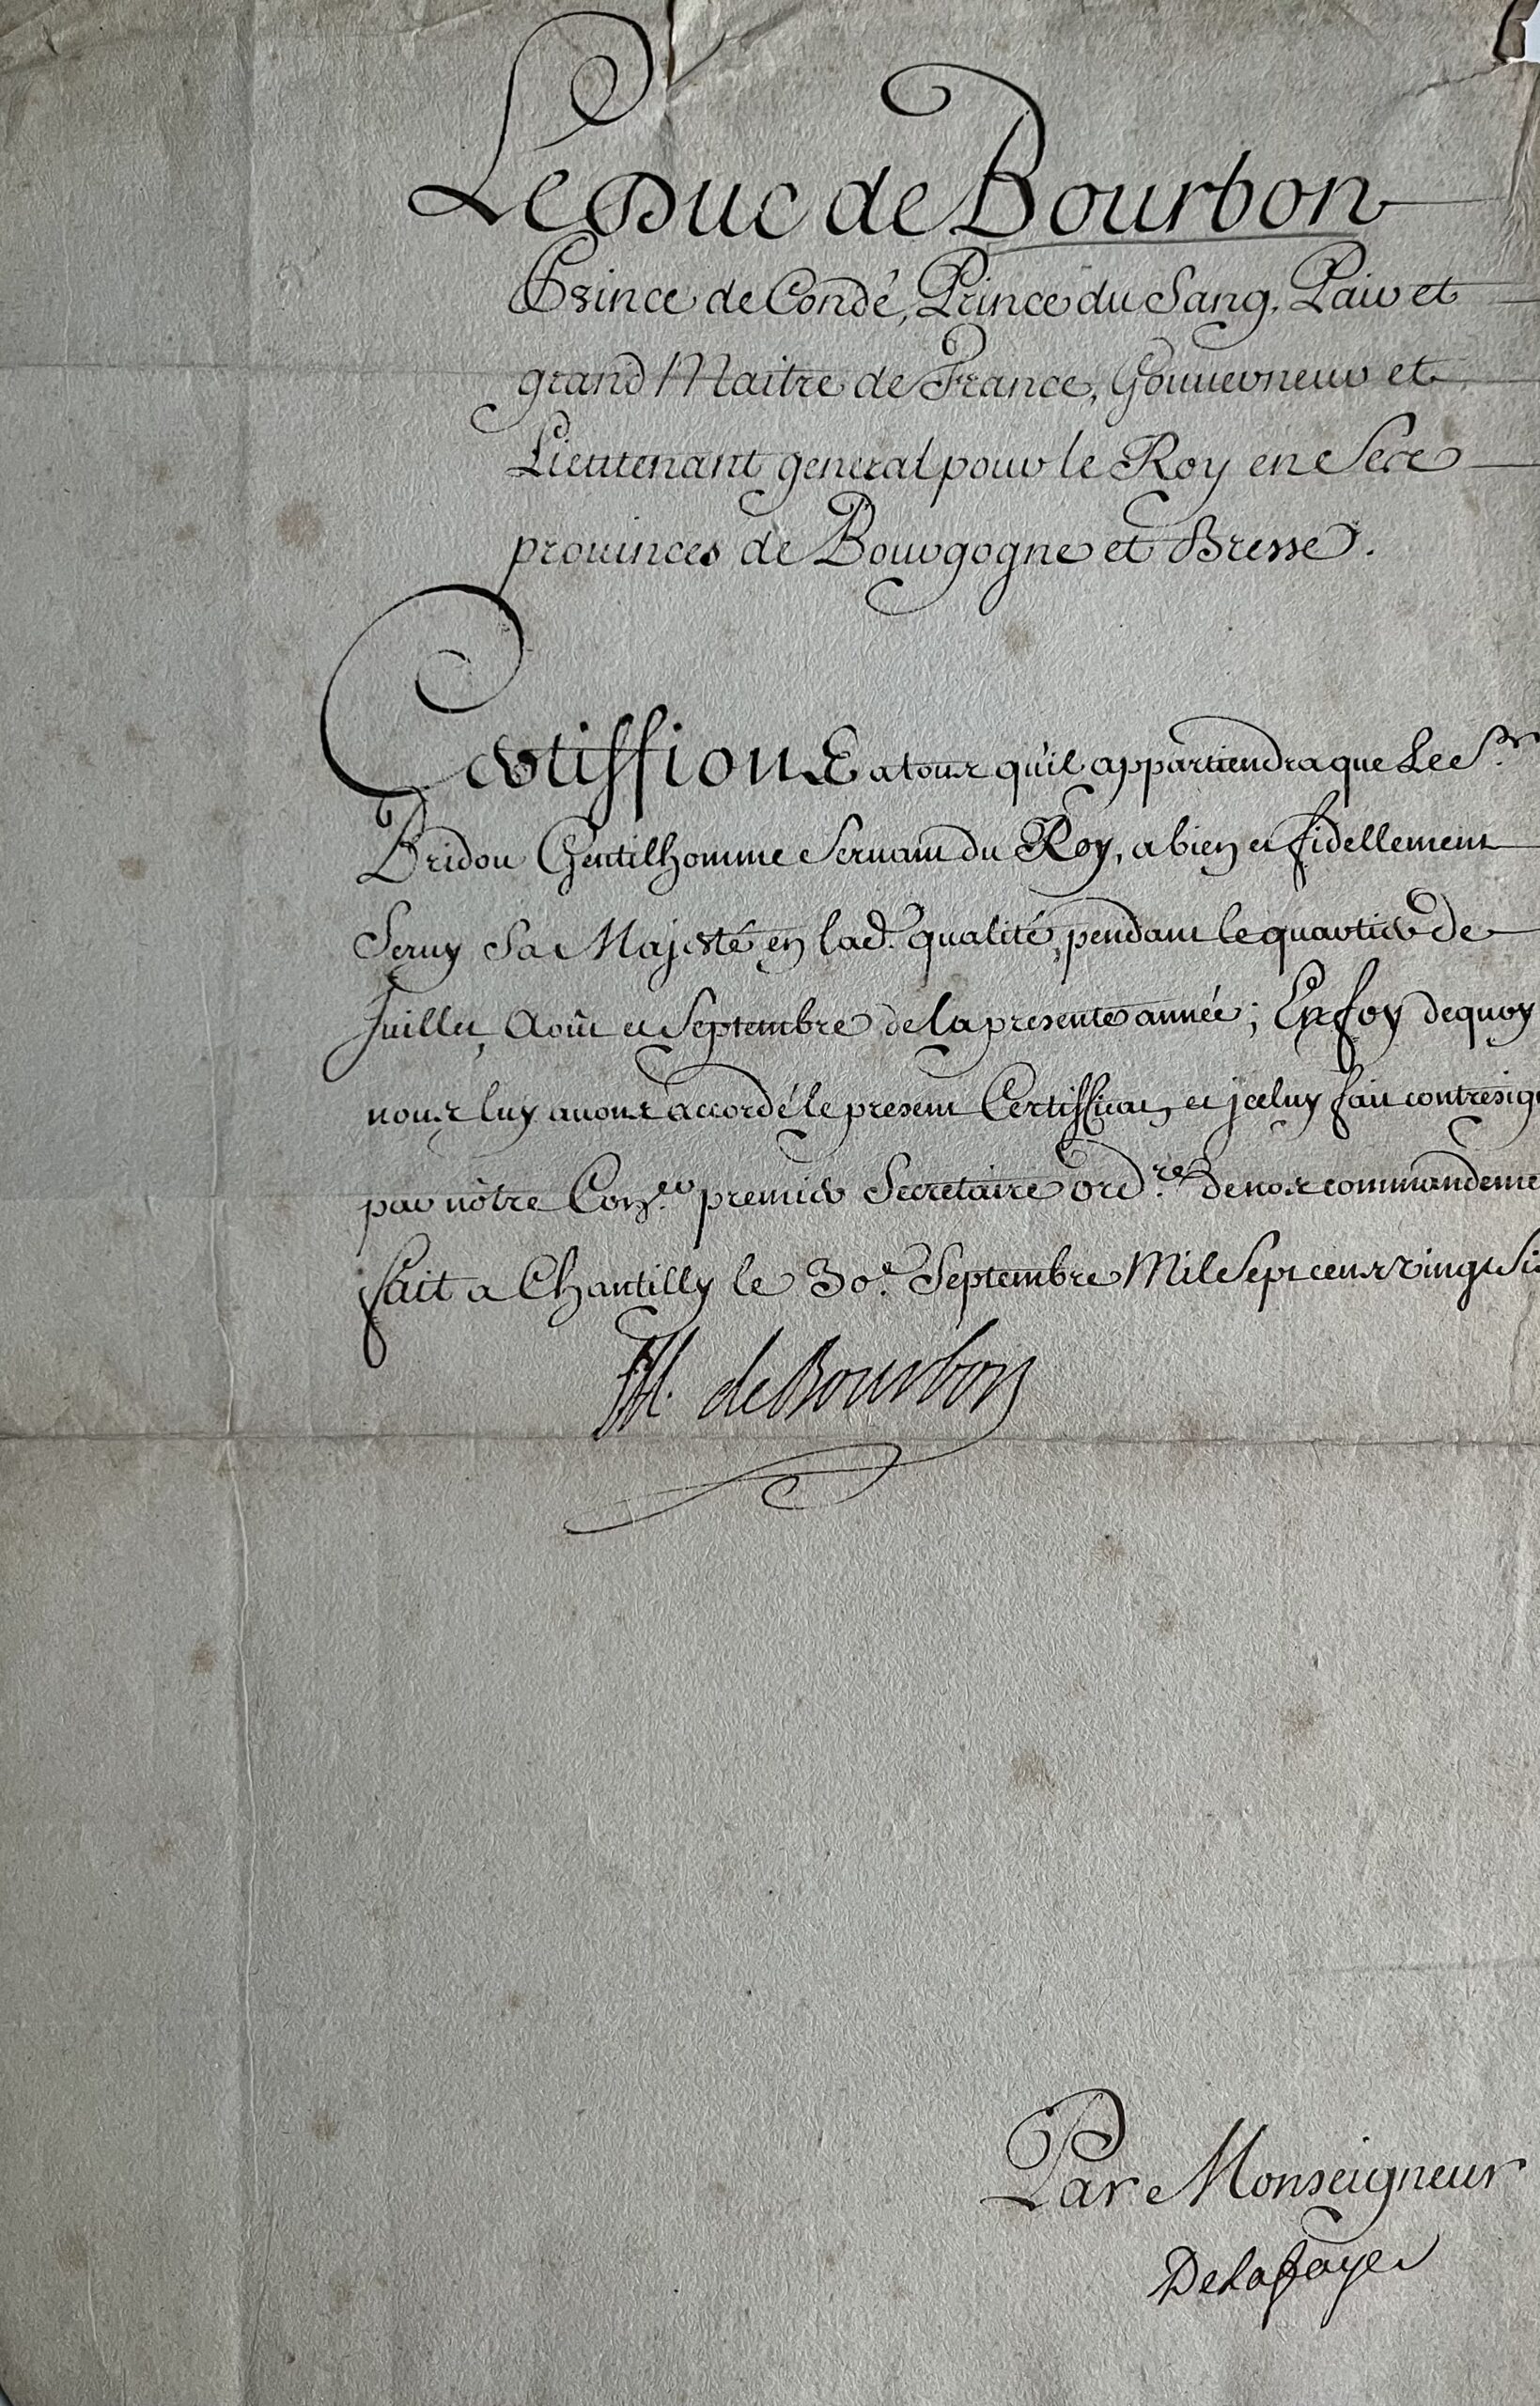 Le Duc de Bourbon
Prince de Condé, Prince du Sang, Pair et
grand Maitre de France, Gouuerneur et
Lieutenant general pour le Roy en Ses
prouinces de Bourgogne et Bresse.
Certiffions a tous qu'il appartiendra que Le S.r
Bridou Gentilhomme Seruant du Roy, a bien et fidellement
Seruy Sa Majesté en lad.e qualité, pendant le quartier de
Juillet, Août et Septembre de la presente année; En foy dequoy
nous luy auons accordé le present Certifficat, et jceluy fait contresig
par nôtre Con.er premier Secretaire ord.re de nos commandeme
fait a Chantilly le 30.e Septembre Mil Sept cens vingt Si
M. de Bourbon
Par Monseigneur
Delafaye